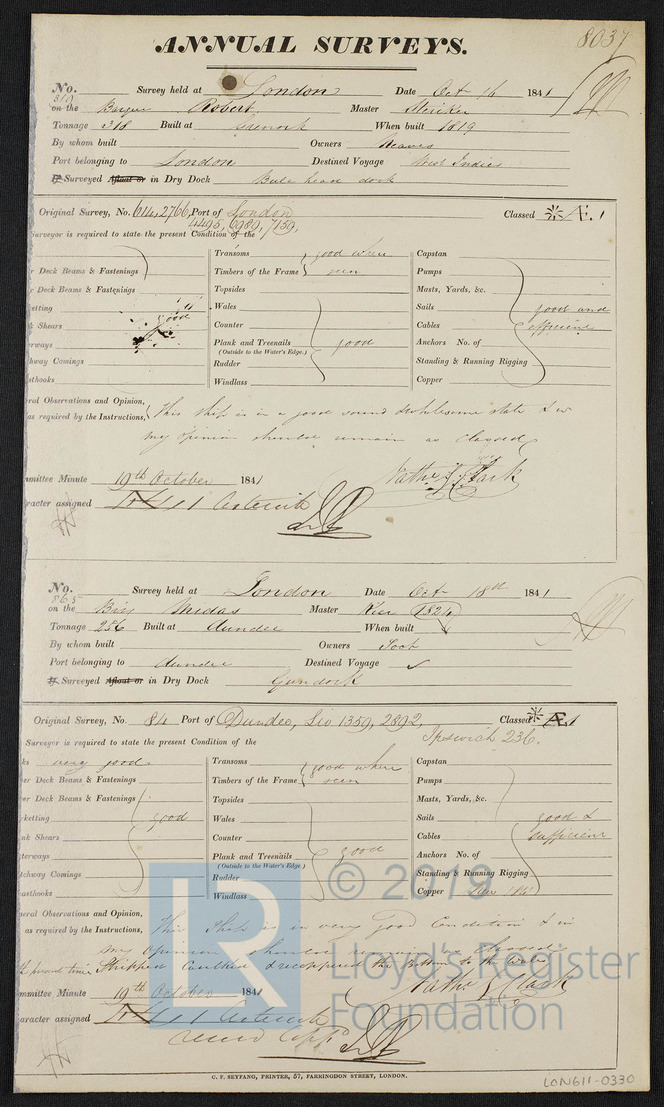 8037
ANNUAL SURVEYS.
No. 810 Survey held at London Date Oct 16 1841
on the Barque Robert Master
Tonnage 318 Built at Greenock When built 1819
By whom built Owners Neaves
Port belonging to London Destined Voyage West Indies
If Surveyed Afloat or in Dry Dock Bule head dock
Original Survey, No. 614, 2766, Port of London Classed Æ.1
4495, 6989, 7159,
Surveyor is required to state the present Condition of the
Transoms good when Capstan
r Deck Beams & Fastenings Timbers of the Frame seen Pumps
r Deck Beams & Fastenings Topsides Masts, Yards, &c.
ketting Wales Sails good and
k Shears good Counter Cables efficient
erways Plank and Treenails good Anchors No. of
(Outside to the Water's Edge.)
hway Comings Rudder Standing & Running Rigging
sthooks Windlass Copper
ral Observations and Opinion,
as required by the Instructions, This Ship is in a good sound & wholesome state & in
my opinion should remain as Classed
Nathl Clark
mmittee Minute 19th October 1841
racter assigned Asterisk
No. 865 Survey held at London Date Oct 18th 1841
on the Brig Midas Master Kerr 1824
Tonnage 256 Built at Dundee When built
By whom built Owners
Port belonging to Dundee Destined Voyage
If Surveyed Afloat or in Dry Dock Gundock
Original Survey, No. 84 Port of Dundee, 1359, 2892, Classed Æ.1
Ipswich 236.
Surveyor is required to state the present Condition of the
ks very good Transoms good when Capstan
er Deck Beams & Fastenings Timbers of the Frame seen Pumps
er Deck Beams & Fastenings Topsides Masts, Yards, &c.
rketting good Wales Sails good &
nk Shears Counter Cables sufficient
terways Plank and Treenails good Anchors No. of
(Outside to the Water's Edge.)
tchway Comings Rudder Standing & Running Rigging
easthooks Windlass Copper
neral Observations and Opinion,
as required by the Instructions, This Ship is in very Good Condition & in
my opinion should remain as Classed
present time Stripped Caulked & recoppered the Bottom to the Wales
Nathl Clark
mmittee Minute 19th October 1841
aracter assigned Asterisk
C. F. SEYFANG, PRINTER, 57, FARRINGDON STREET, LONDON.
LON611-0330
LR
© 2019
Lloyd's Register
Foundation